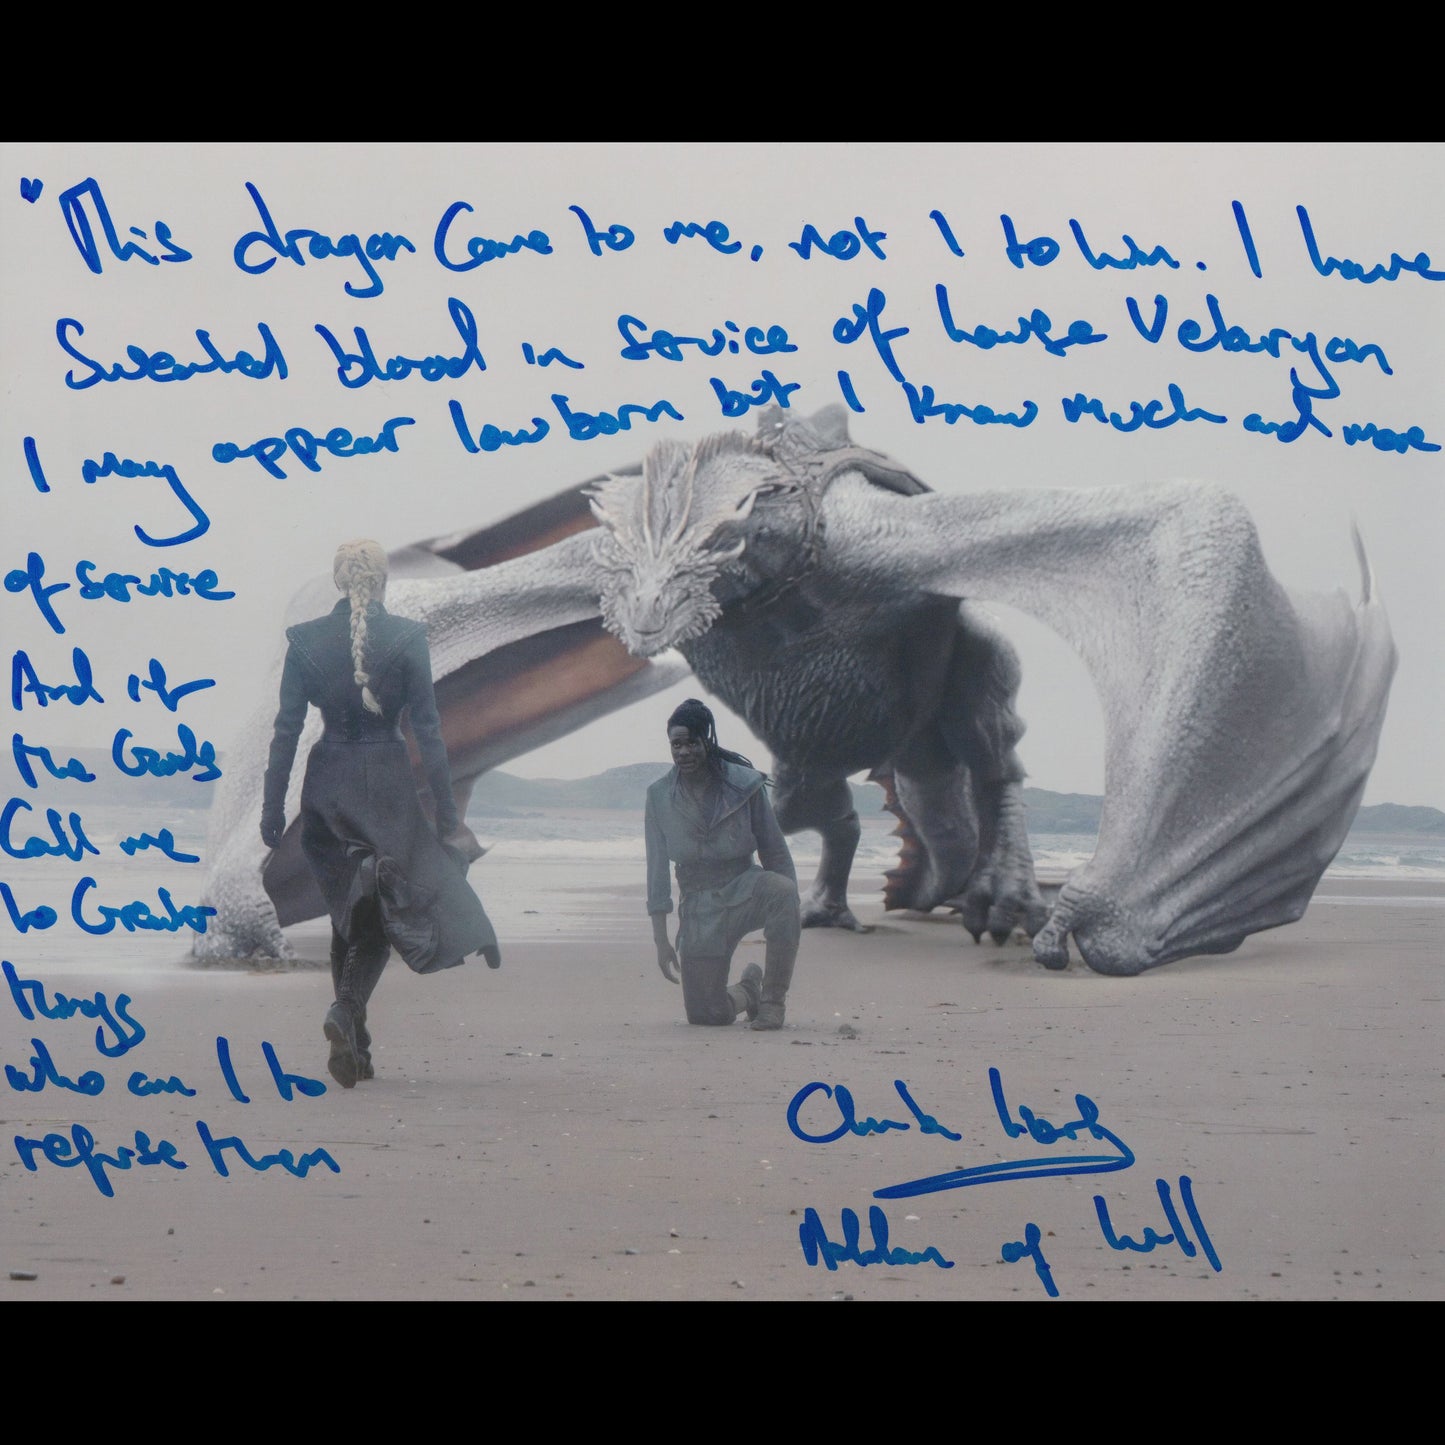 "This dragon Came to me, not I to him. I have
Sweated blood in service of house Velaryon
I may appear lowborn but I know much and more
of service
And if
the Gods
Call me
to Greater
things
who am I to
refuse them
Clinton Liberty
Addam of hull